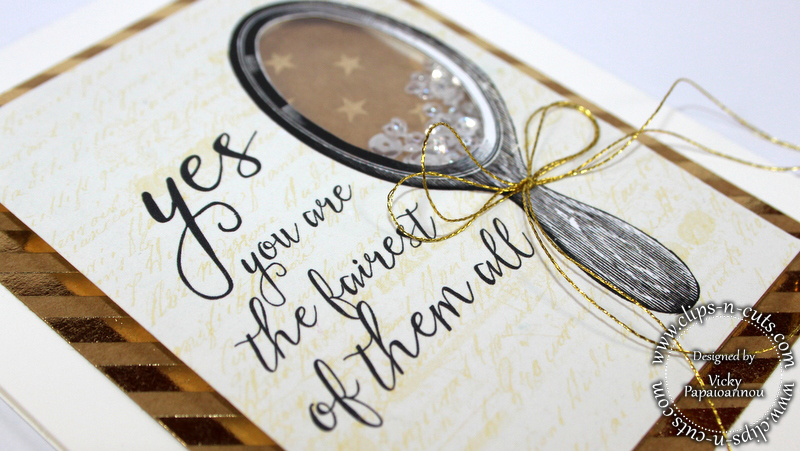 yes
you are
the fairest
of them all
www.clips-n-cuts.com
Designed by
Vicky
Papaioannou
www.clips-n-cuts.com